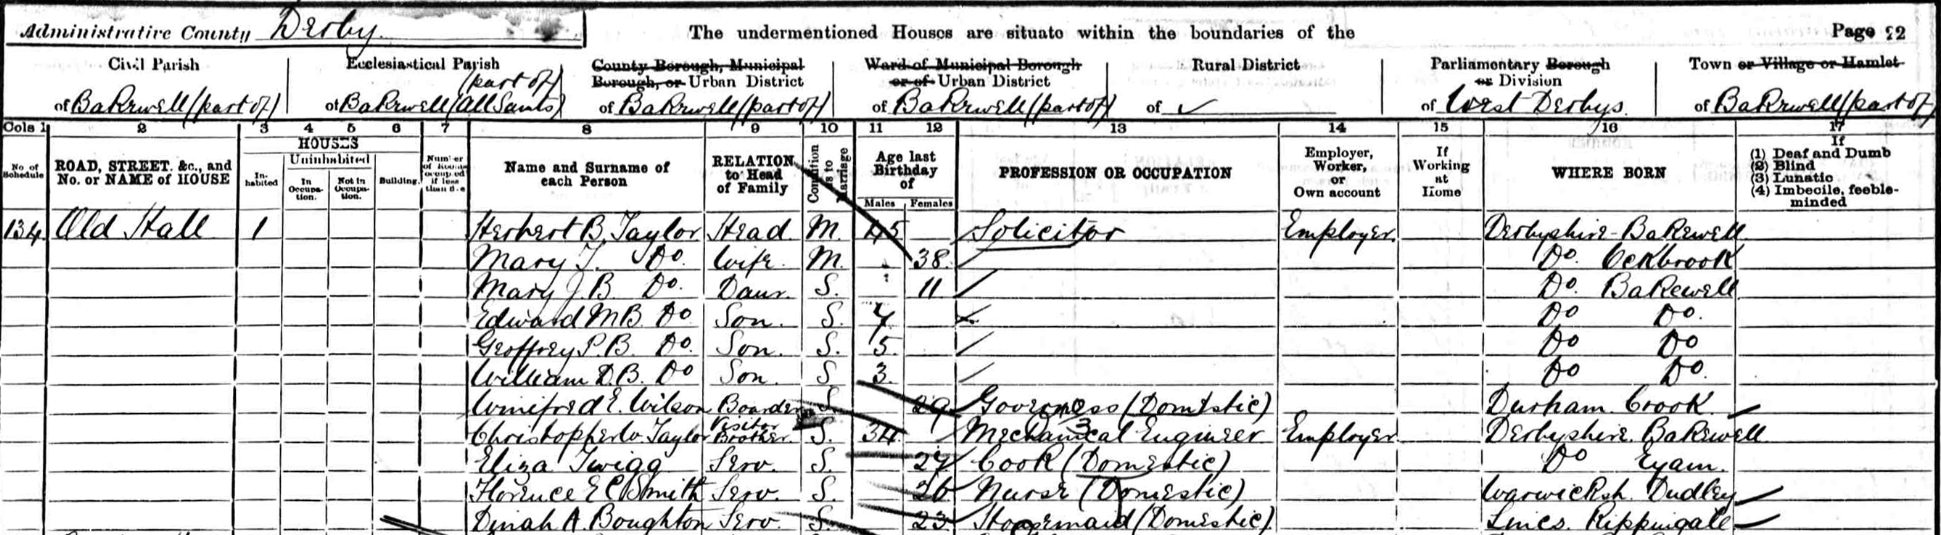 Administrative County Derby
The undermentioned Houses are situate within the boundaries of the
Page 22
Civil Parish
of Bakewell (part of)
Ecclesiastical Parish
(part of)
of Bakewell (All Saints)
County Borough, Municipal
Borough, or Urban District
of Bakewell (part of)
Ward of Municipal Borough
or of Urban District
of Bakewell (part of)
Rural District
of ✓
Parliamentary Borough
or Division
of West Derbys.
Town or Village or Hamlet
of Bakewell (part of)
Cols 1 2 3 4 5 6 7 8 9 10 11 12 13 14 15 16 17
No. of Schedule
ROAD, STREET, &c., and No. or NAME of HOUSE
HOUSES
In-habited
Uninhabited
In Occupa-tion.
Not in Occupa-tion.
Building.
Number of Rooms occupied if less than five
Name and Surname of each Person
RELATION to Head of Family
Condition as to Marriage
Age last Birthday of
Males
Females
PROFESSION OR OCCUPATION
Employer, Worker, or Own account
If Working at Home
WHERE BORN
If
(1) Deaf and Dumb
(2) Blind
(3) Lunatic
(4) Imbecile, feeble-minded
134 Old Hall 1 Herbert B. Taylor Head M. 45 Solicitor Employer Derbyshire Bakewell
Mary T. Do. Wife M. 38 Do. Ockbrook
Mary J. B. Do. Daur. S. 11 Do. Bakewell
Edward M B Do Son. S. 7 Do Do.
Geoffrey P. B. Do. Son. S. 5. Do Do
William D. B. Do Son. S 3. Do Do.
Winifred E. Wilson Boarder S. 29 Governess (Domestic) Durham. Crook.
Christopher W Taylor Visitor Brother S. 34 Mechanical Engineer Employer Derbyshire. Bakewell
Eliza Twigg Serv. S. 27 Cook (Domestic) Do Eyam.
Florence E C Smith Serv. S. 26 Nurse (Domestic) Warwicksh. Dudley
Dinah A. Boughton Serv. S. 23 Housemaid (Domestic) Lincs. Rippingale